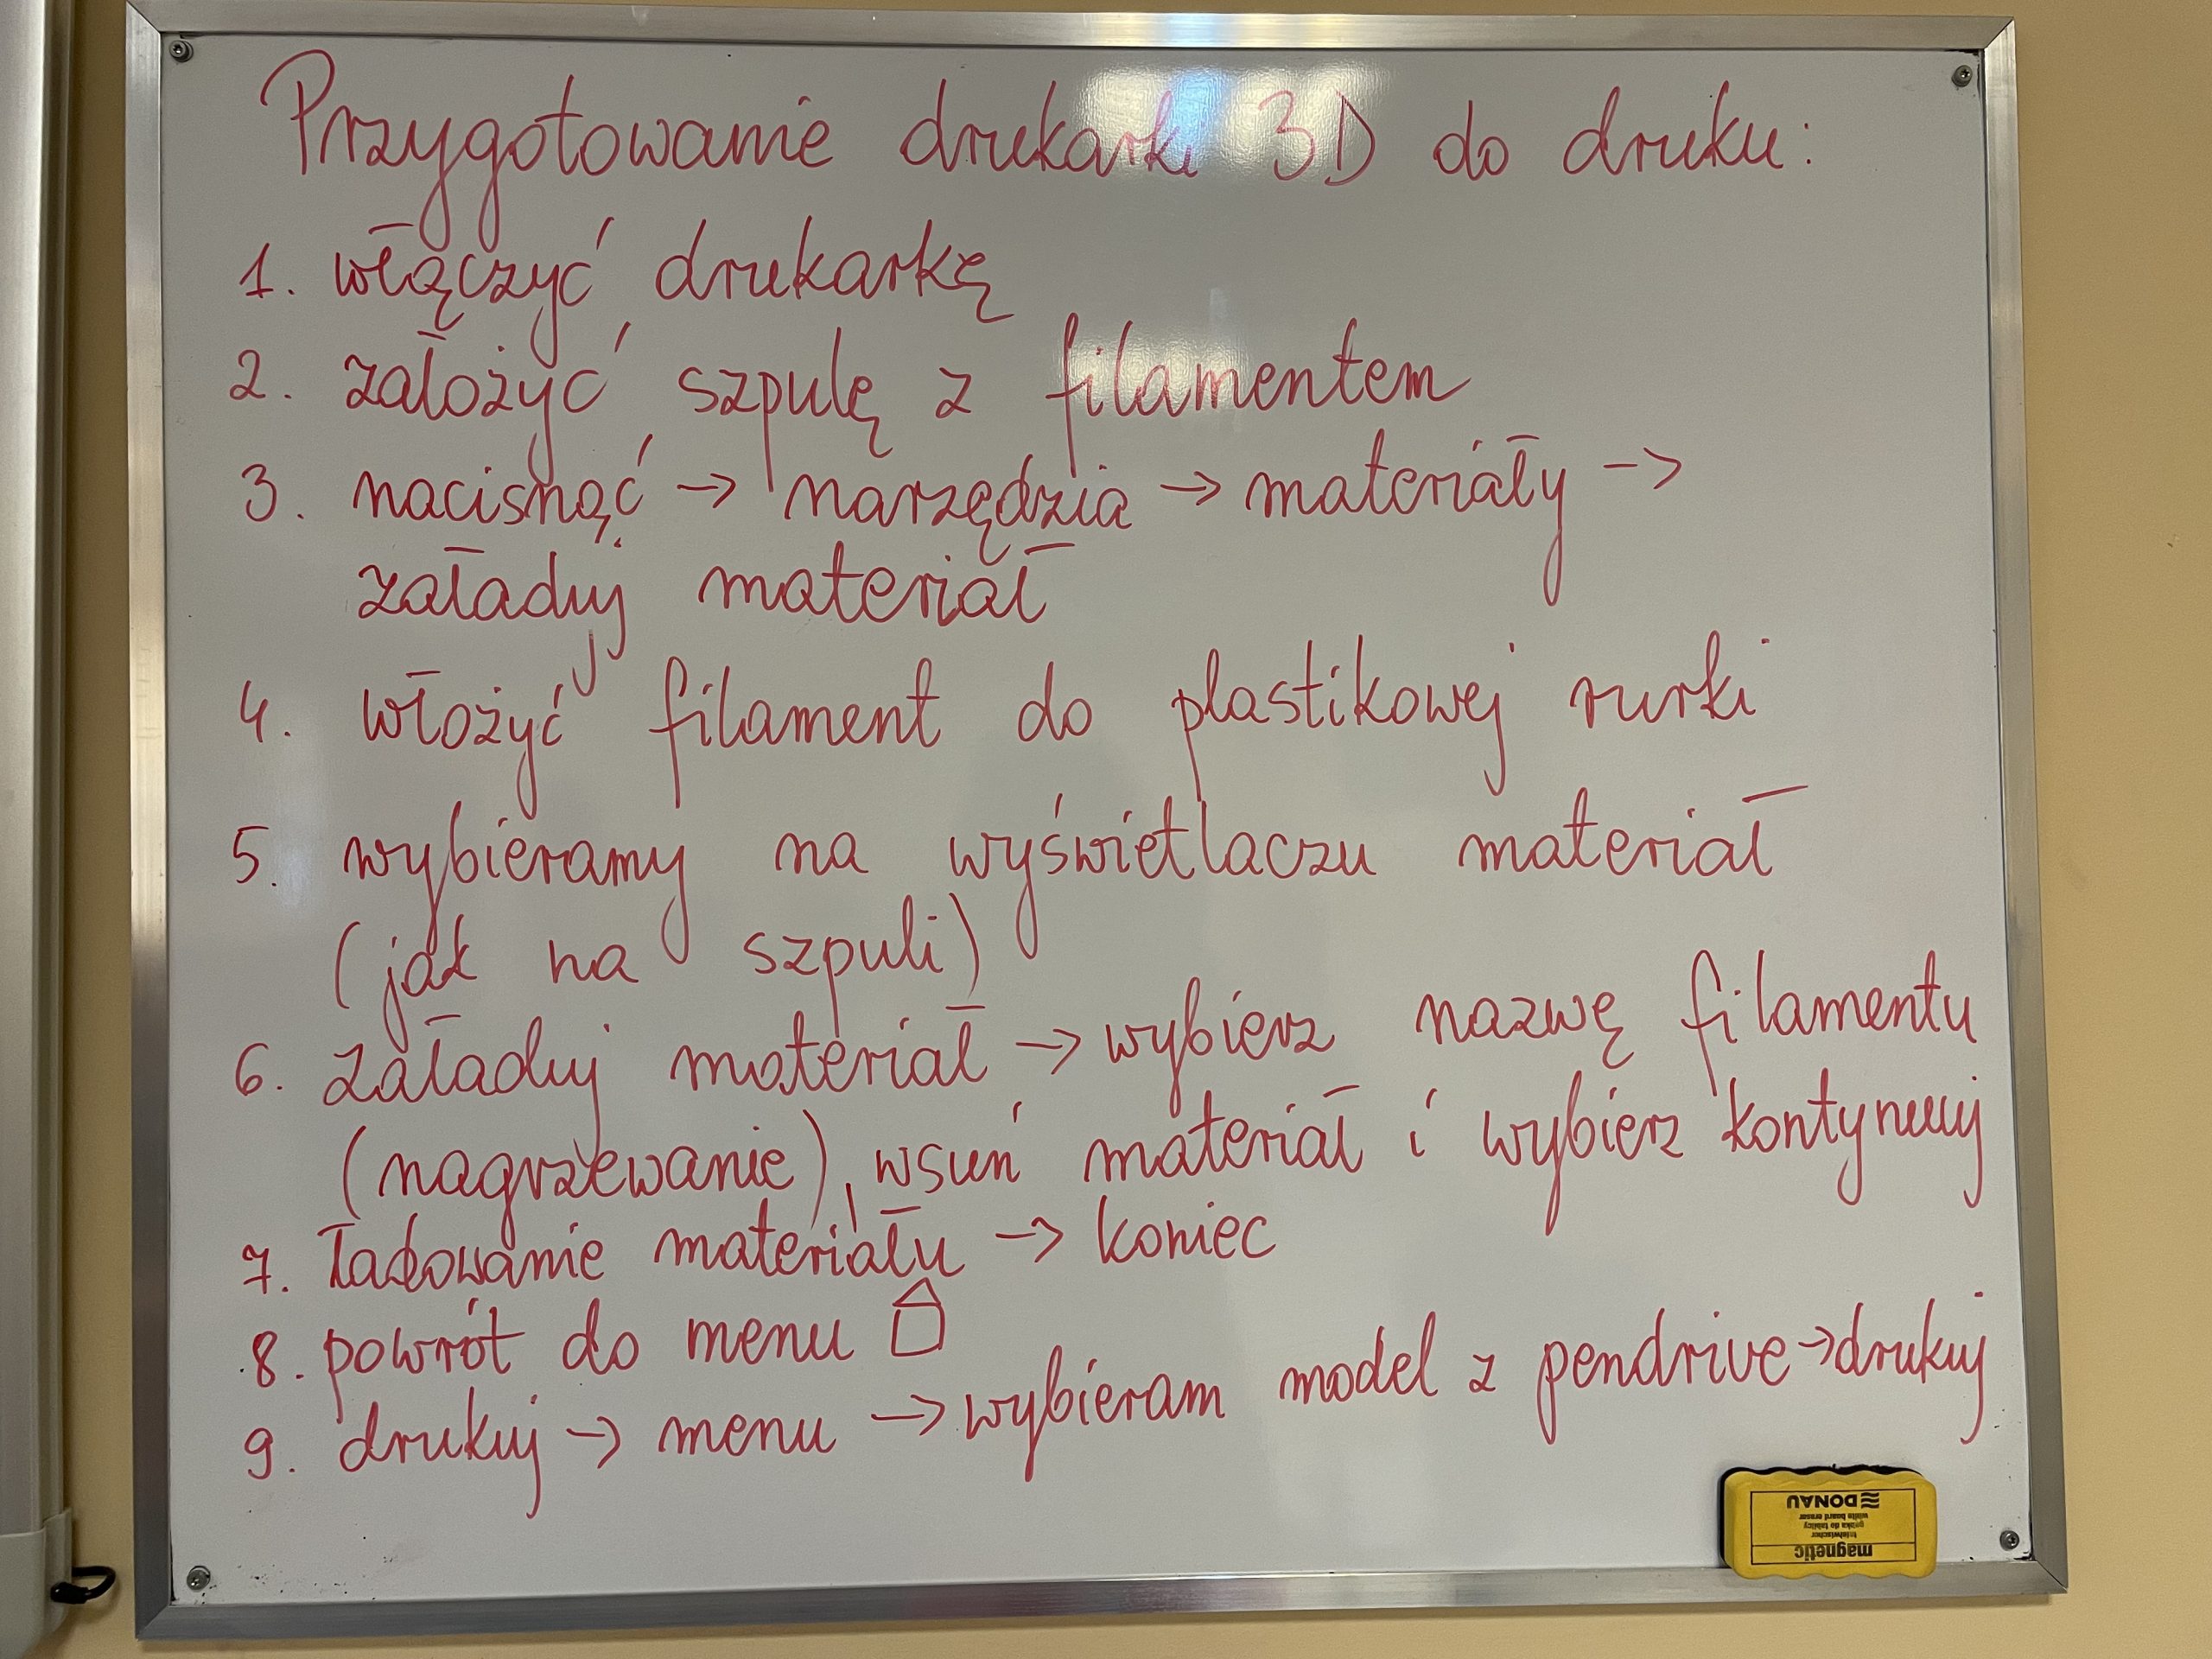 Przygotowanie drukarki 3D do druku:
1. włączyć drukarkę
2. założyć szpulę z filamentem
3. nacisnąć → narzędzia → materiały →
załaduj materiał
4. włożyć filament do plastikowej rurki
5. wybieramy na wyświetlaczu materiał
(jak na szpuli)
6. załaduj materiał → wybierz nazwę filamentu
(nagrzewanie), wsuń materiał i wybierz kontynuuj
7. Ładowanie materiału → koniec
8. powrót do menu
9. drukuj → menu → wybieram model z pendrive → drukuj
magnetic
tafelwischer
gąbka do tablicy
white board eraser
DONAU